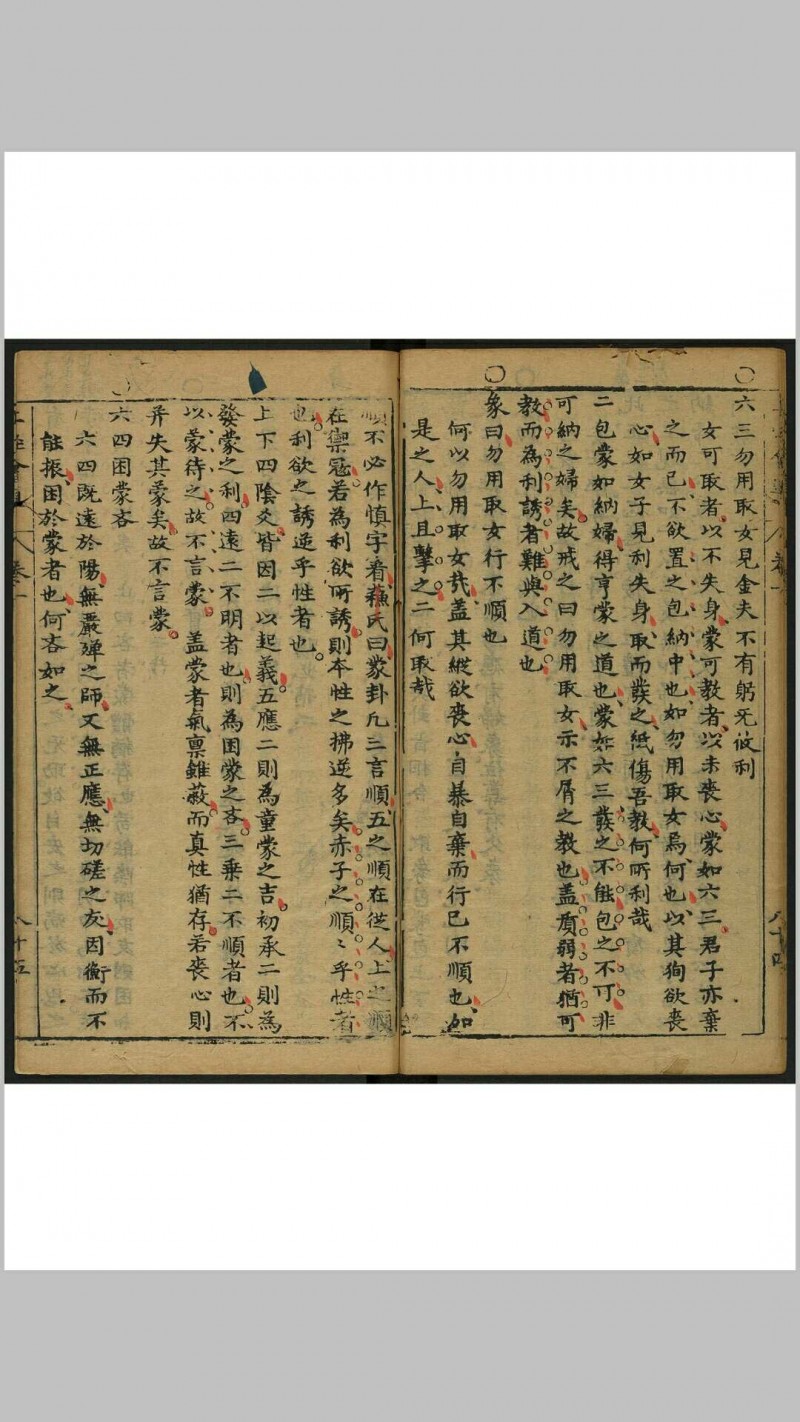 六三勿用取女見金夫不有躬无攸利
女可取者以不失身蒙可教者以未喪心蒙如六三君子亦棄
之而已不欲置之包納中也如勿用取女焉何也以其狥欲喪
心如女子見利失身取而發之秪傷吾教何所利哉
二包蒙如納婦得亨蒙之道也蒙如六三發之不能包之不可非
可納之婦矣故戒之曰勿用取女示不屑之教也蓋質弱者猶可
教而為利誘者難與入道也
象曰勿用取女行不順也
何以勿用取女哉蓋其縱欲喪心自暴自棄而行已不順也如
是之人上且擊之二何取哉
順不必作慎字看蘓氏曰蒙卦凢三言順五之順在從人上之順
在禦寇若為利欲所誘則本性之拂逆多矣赤子之順〻乎性者
也利欲之誘逆乎性者也
上下四陰爻皆因二以起義五應二則為童蒙之吉初承二則為
發蒙之利四遠二不明者也則為困蒙之吝三乗二不順者也不
以蒙待之故不言蒙蓋蒙者氣禀雖蔽而真性猶存若喪心則
并失其蒙矣故不言蒙
六四困蒙吝
六四既遠於陽無嚴殫之師又無正應無切磋之友因衡而不
能振困於蒙者也何吝如之